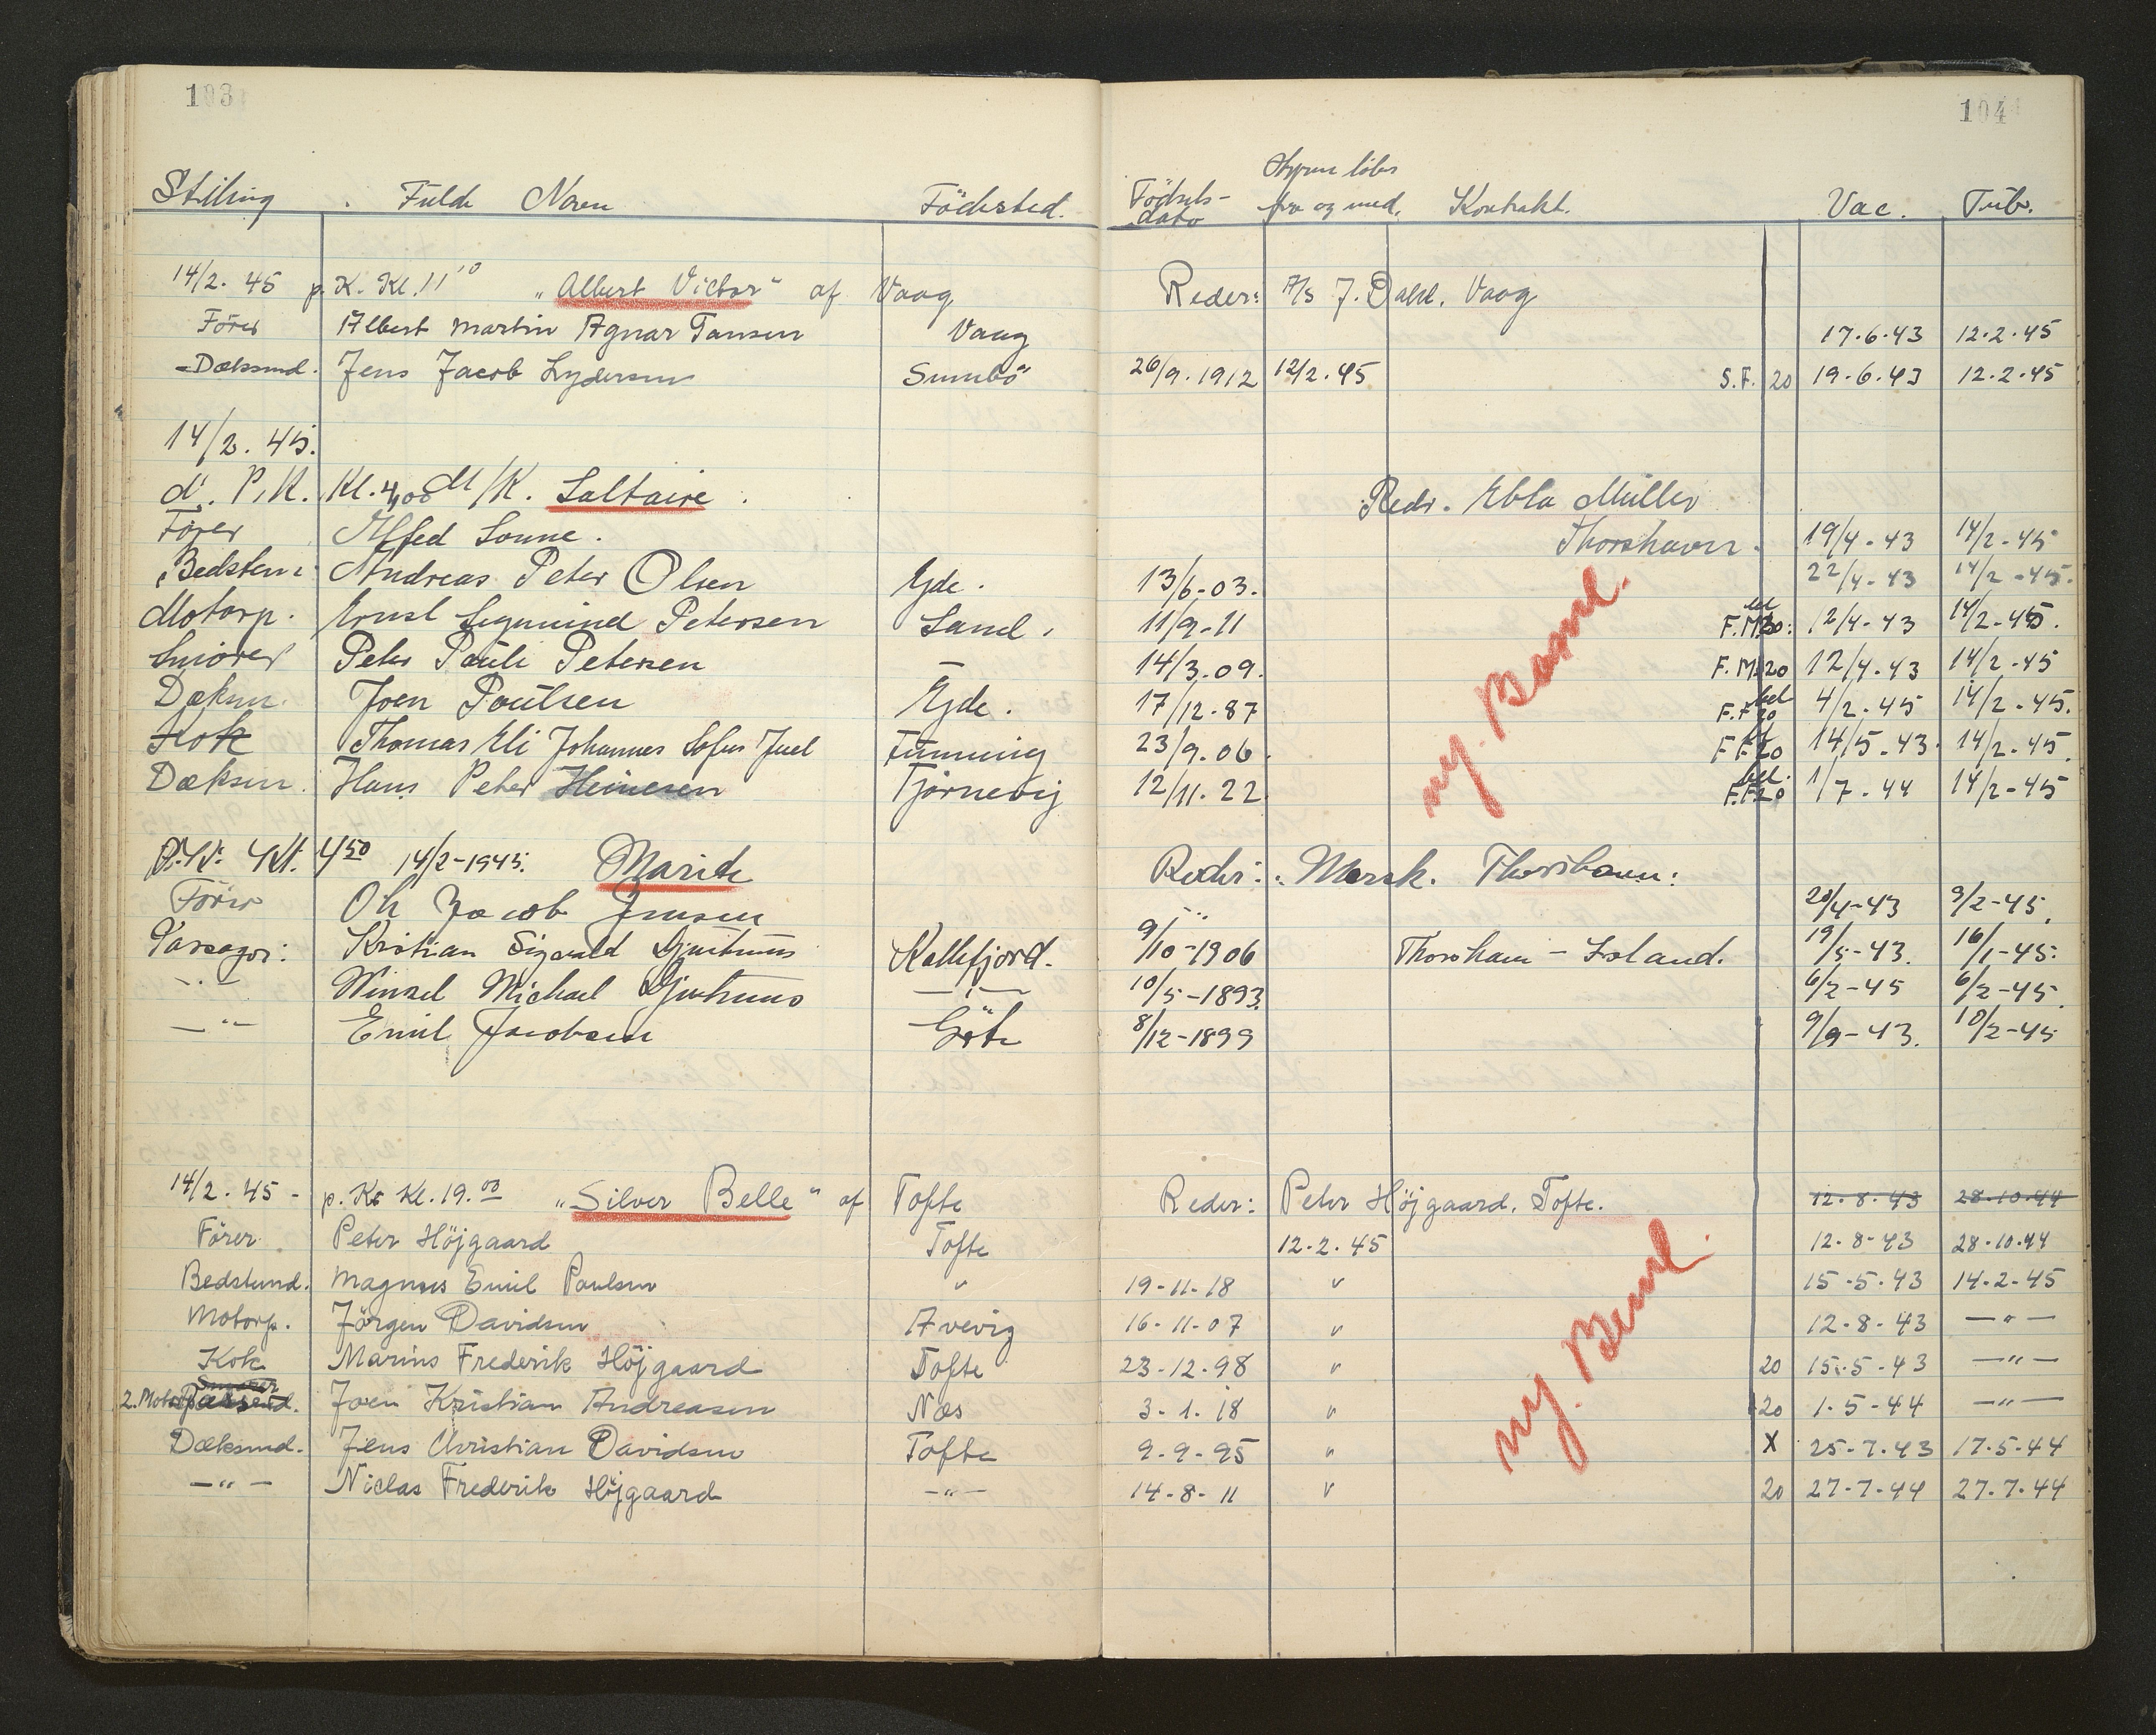 103 104
Stilling Fulde Navn Födested. Födsels-dato Hyren löber fra og med. Kontrakt. Vac. Tub.
14/2. 45 p. K. Kl. 11¹⁰ "Albert Victor" af Vaag Reder: A/S J. Dahl, Vaag
Förer Albert Martin Agnar Tausen Vaag 17.6.43 12.2.45
Dæksmd. Jens Jacob Lydersen Sumbö 26/9.1912 12/2.45 S.F. 20 19.6.43 12.2.45
14/2. 45.
d. P.K. Kl. 4,00 M/K. Saltaire. Redr. Ebba Müller
Förer Alfred Sonne. Thorshavn. 19/4-43 14/2-45
Bedstem: Andreas Peter Olsen Ejde. 13/6-03. 22/4-43 14/2-45.
Motorp. Ernst Sigmund Petersen Sand. 11/9-11 F.M. 20: 12/4-43 14/2-45.
Smörer Peter Pauli Petersen — 14/3.09. F.M. 20 12/4.43 14/2-45
Dæksm. Joen Poulsen Ejde. 17/12.87 F.F. 20 4/2.45 14/2-45.
Kok Thomas Eli Johannes Sofus Juel Funning 23/9.06. F.F. 20 14/5.43. 14/2-45.
Dæksm. Hans Peter Heinesen Tjörnevig 12/11.22. F.F. 20 1/7-44 14/2-45
ny. Baml.
P.K. Kl. 4⁵⁰ 14/2-1945. Marite Reder: Mersk. Thorshavn:
Förer Ole Jacob Jensen 20/4-43 9/2-45.
Passager: Kristian Sigvald Djurhuus Kollefjord. 9/10-1906 Thorshavn - Island. 19/5-43. 16/1-45.
-"- Winzel Michael Djurhuus -"- 10/5-1893. 6/2-45 6/2-45.
-"- Emil Jacobsen Göte 8/12-1899 9/9-43. 10/2-45
14/2. 45 - p. K. Kl. 19.⁰⁰ "Silver Belle" af Tofte Reder: Peter Höjgaard, Tofte. 12.8.43 28.10.44
Förer Peter Höjgaard Tofte 12.2.45 12.8-43 28.10.44
Bedstmd. Magnus Emil Poulsen " 19-11-18 " 15-5.43 14.2-45
Motorp. Jörgen Davidsen Avevig 16-11-07 " 12-8-43 -"-
Kok Marius Frederik Höjgaard Tofte 23-12-98 " 20 15.5-43 -"-
2. Motorp. Joen Kristian Andreasen Næs 3-1.18 " 20 1.5-44 -"-
Dæksmd. Jens Christian Davidsen Tofte 9-9-95 " X 25-7.43 17.5-44
-"- Niclas Frederik Höjgaard -"- 14-8-11 " 20 27-7-44 27.7.44
ny. Baml.